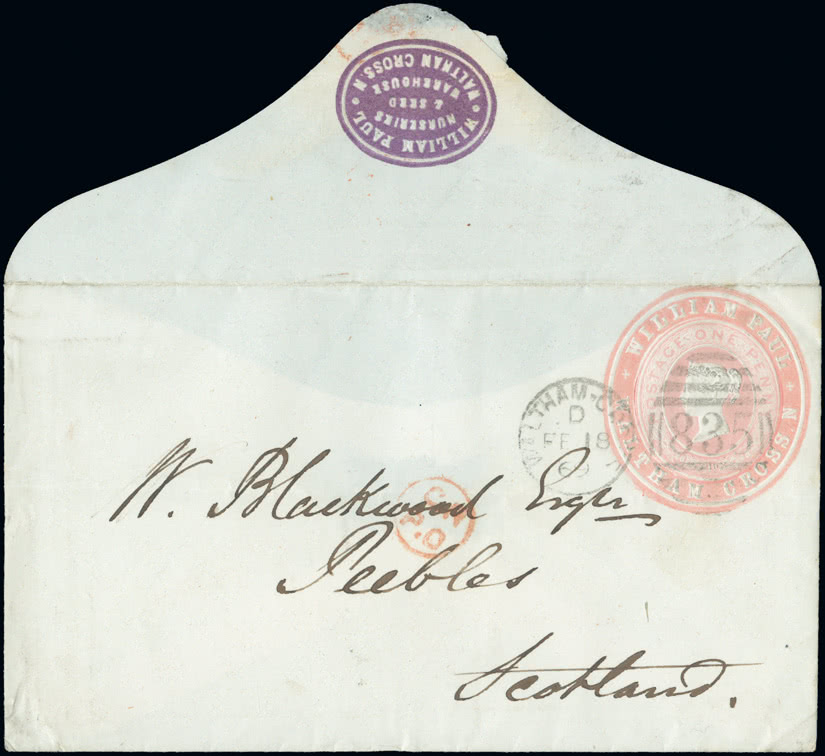 WILLIAM PAUL
NURSERIES
& SEED
WAREHOUSE
WALTHAM CROSS. N
WILLIAM PAUL
WALTHAM. CROSS. N
POSTAGE ONE PENNY
WALTHAM-CROSS
D
FE 18
835
W. Blackwood Esqre
Peebles
Scotland.